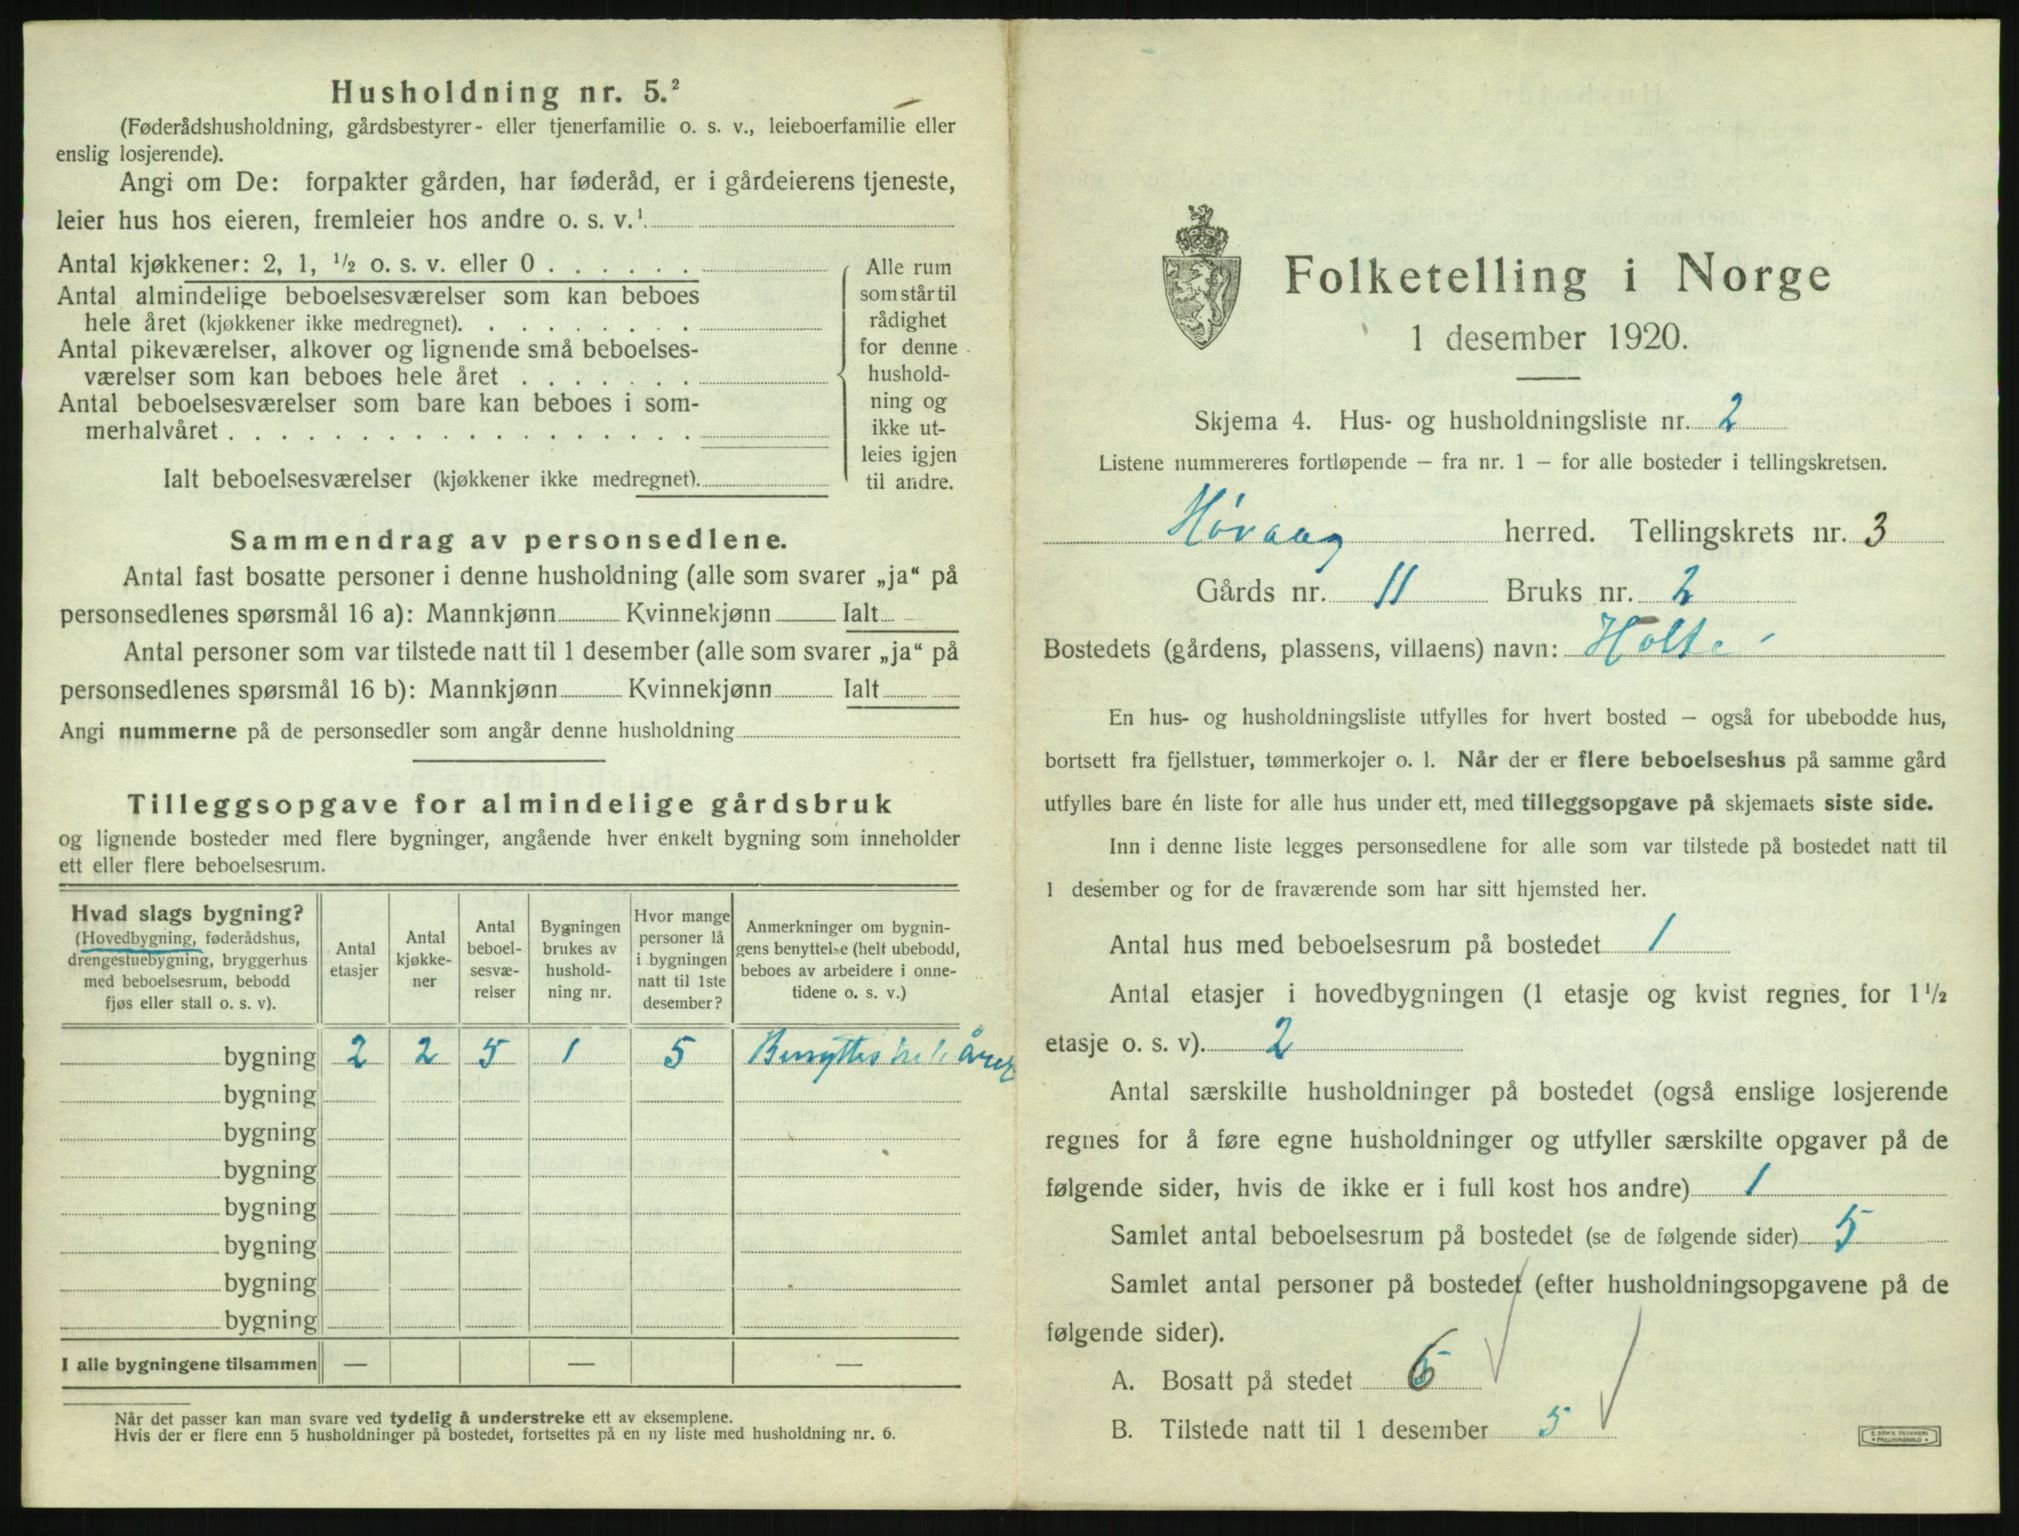 Husholdning nr. 5.²
(Føderådshusholdning, gårdsbestyrer- eller tjenerfamilie o. s. v., leieboerfamilie eller
enslig losjerende).
Angi om De: forpakter gården, har føderåd, er i gårdeierens tjeneste,
leier hus hos eieren, fremleier hos andre o. s. v.¹
Antal kjøkkener: 2, 1, ½ o. s. v. eller 0
Antal almindelige beboelsesværelser som kan beboes
hele året (kjøkkener ikke medregnet).
Antal pikeværelser, alkover og lignende små beboelses-
værelser som kan beboes hele året
Antal beboelsesværelser som bare kan beboes i som-
merhalvåret
Ialt beboelsesværelser (kjøkkener ikke medregnet).
Alle rum
som står til
rådighet
for denne
hushold-
ning og
ikke ut-
leies igjen
til andre.
Sammendrag av personsedlene.
Antal fast bosatte personer i denne husholdning (alle som svarer „ja“ på
personsedlenes spørsmål 16 a): Mannkjønn Kvinnekjønn Ialt
Antal personer som var tilstede natt til 1 desember (alle som svarer „ja“ på
personsedlenes spørsmål 16 b): Mannkjønn Kvinnekjønn Ialt
Angi nummerne på de personsedler som angår denne husholdning
Tilleggsopgave for almindelige gårdsbruk
og lignende bosteder med flere bygninger, angående hver enkelt bygning som inneholder
ett eller flere beboelsesrum.
Hvad slags bygning?
(Hovedbygning, føderådshus,
drengestuebygning, bryggerhus
med beboelsesrum, bebodd
fjøs eller stall o. s. v).
Antal
etasjer
Antal
kjøkke-
ner
Antal
beboel-
sesvæ-
relser
Bygningen
brukes av
hushold-
ning nr.
Hvor mange
personer lå
i bygningen
natt til 1ste
desember?
Anmerkninger om bygnin-
gens benyttelse (helt ubebodd,
beboes av arbeidere i onne-
tidene o. s. v.)
bygning 2 2 5 1 5 Benyttes hele året
bygning
bygning
bygning
bygning
bygning
bygning
bygning
I alle bygningene tilsammen — — —
Når det passer kan man svare ved tydelig å understreke ett av eksemplene.
Hvis der er flere enn 5 husholdninger på bostedet, fortsettes på en ny liste med husholdning nr. 6.
Folketelling i Norge
1 desember 1920.
Skjema 4. Hus- og husholdningsliste nr. 2
Listene nummereres fortløpende — fra nr. 1 — for alle bosteder i tellingskretsen.
Høvaag herred. Tellingskrets nr. 3
Gårds nr. 11 Bruks nr. 2
Bostedets (gårdens, plassens, villaens) navn: Holte
En hus- og husholdningsliste utfylles for hvert bosted — også for ubebodde hus,
bortsett fra fjellstuer, tømmerkojer o. l. Når der er flere beboelseshus på samme gård
utfylles bare én liste for alle hus under ett, med tilleggsopgave på skjemaets siste side.
Inn i denne liste legges personsedlene for alle som var tilstede på bostedet natt til
1 desember og for de fraværende som har sitt hjemsted her.
Antal hus med beboelsesrum på bostedet 1
Antal etasjer i hovedbygningen (1 etasje og kvist regnes for 1½
etasje o. s. v). 2
Antal særskilte husholdninger på bostedet (også enslige losjerende
regnes for å føre egne husholdninger og utfyller særskilte opgaver på de
følgende sider, hvis de ikke er i full kost hos andre) 1
Samlet antal beboelsesrum på bostedet (se de følgende sider) 5
Samlet antal personer på bostedet (efter husholdningsopgavene på de
følgende sider).
A. Bosatt på stedet 6
B. Tilstede natt til 1 desember 5